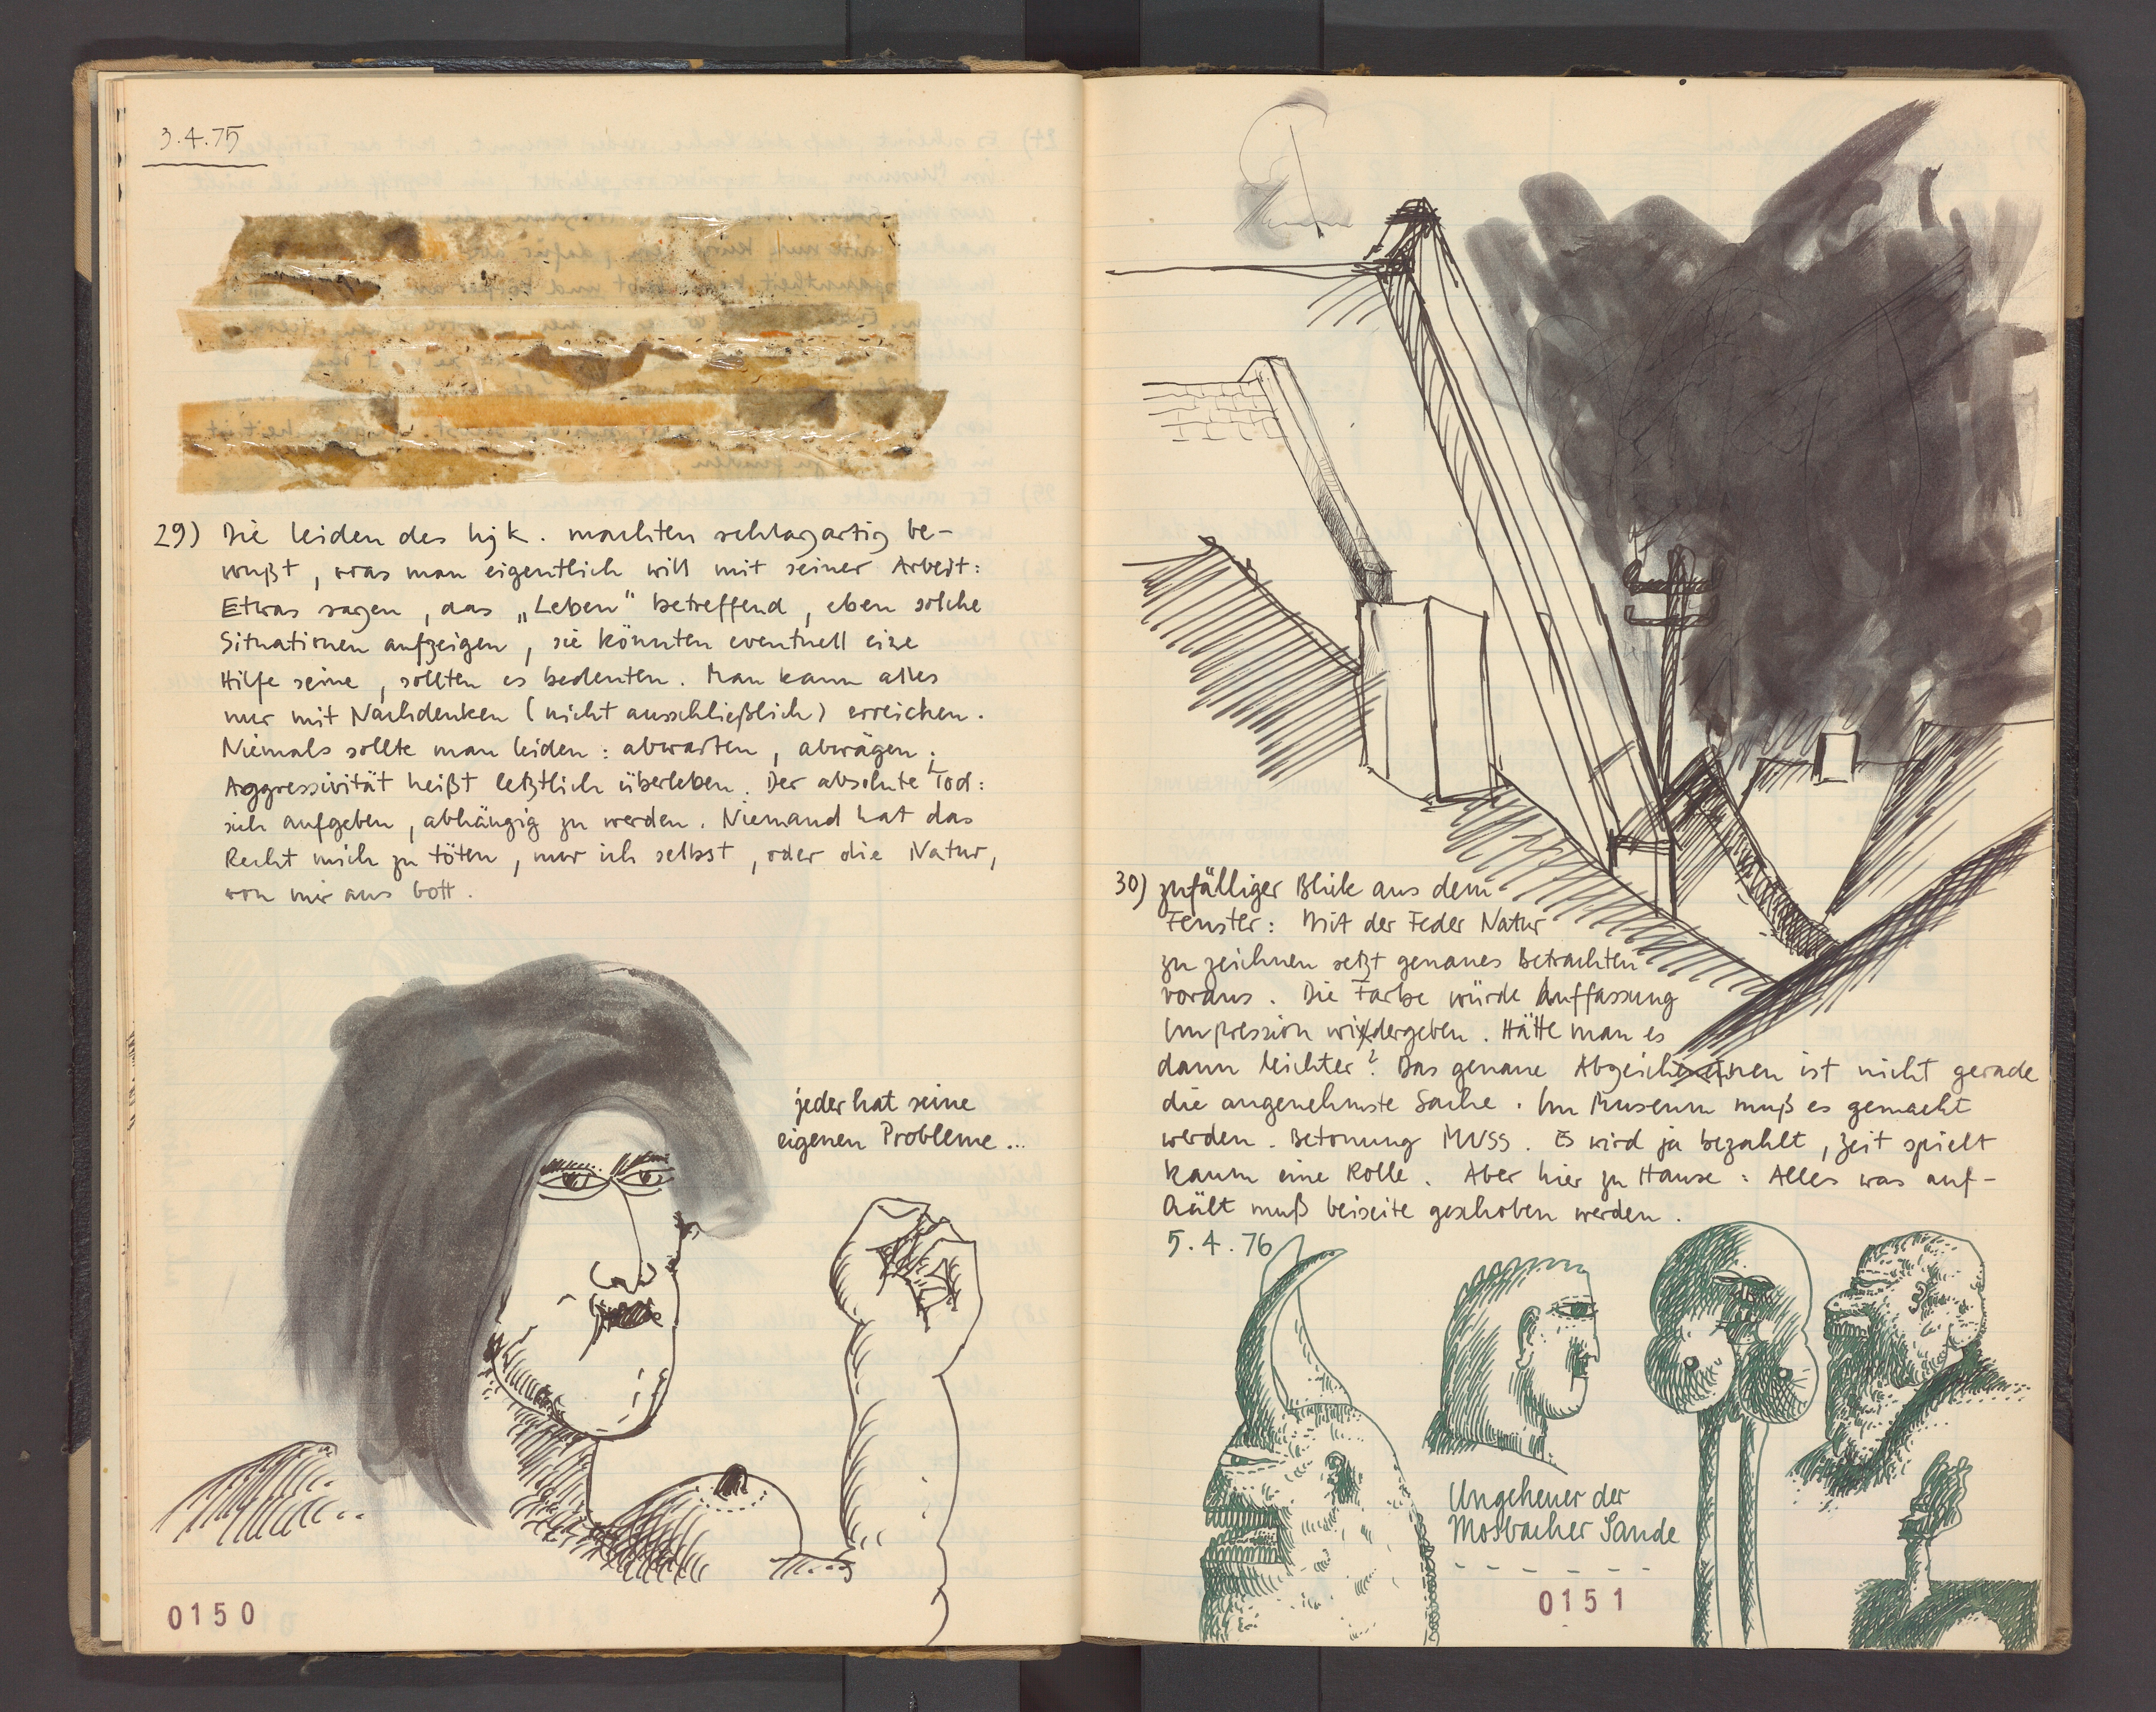 3.4.75
29) Die Leiden des hjk. machten schlagartig be-
wußt, was man eigentlich will mit seiner Arbeit:
Etwas sagen, das „Leben" betreffend, eben solche
Situationen aufzeigen, sie könnten eventuell eine
Hilfe seine, sollten es bedeuten. Man kann alles
nur mit Nachdenken (nicht ausschließlich) erreichen.
Niemals sollte man leiden: abwarten, abwägen;
Aggressivität heißt letztlich überleben. Der absolute Tod:
sich aufgeben, abhängig zu werden. Niemand hat das
Recht mich zu töten, nur ich selbst, oder die Natur,
von mir aus Gott.
jeder hat seine
eigenen Probleme...
0150
30) zufälliger Blick aus dem
Fenster: Mit der Feder Natur
zu zeichnen setzt genaues Betrachten
voraus. Die Farbe würde Auffassung
Impression widergeben. Hätte man es
dann leichter? Das genaue Abzeichnen ist nicht gerade
die angenehmste Sache. Im Museum muß es gemacht
werden. Betonung MUSS. Es wird ja bezahlt, Zeit spielt
kaum eine Rolle. Aber hier zu Hause: Alles was auf-
hält muß beiseite geschoben werden.
5.4.76
Ungeheuer der
Mosbacher Sande
0151